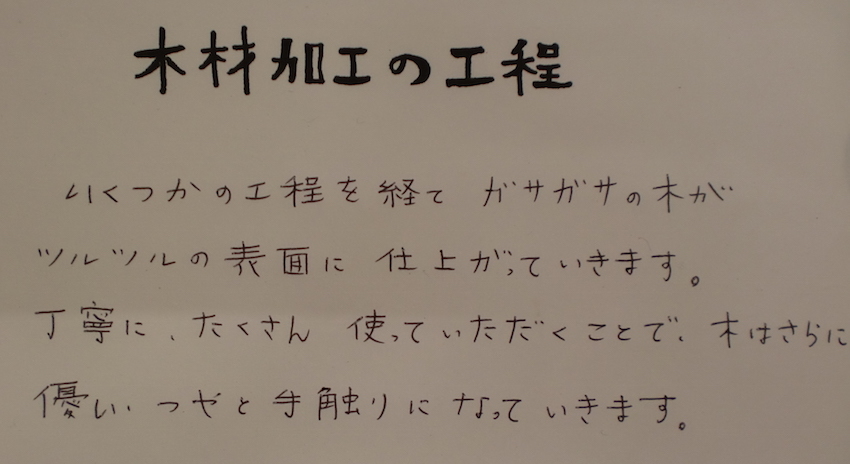 木材加工の工程
いくつかの工程を経て ガサガサの木が
ツルツルの表面に 仕上がっていきます。
丁寧に、たくさん 使っていただくことで、木はさらに
優しい つやと手触りになっていきます。